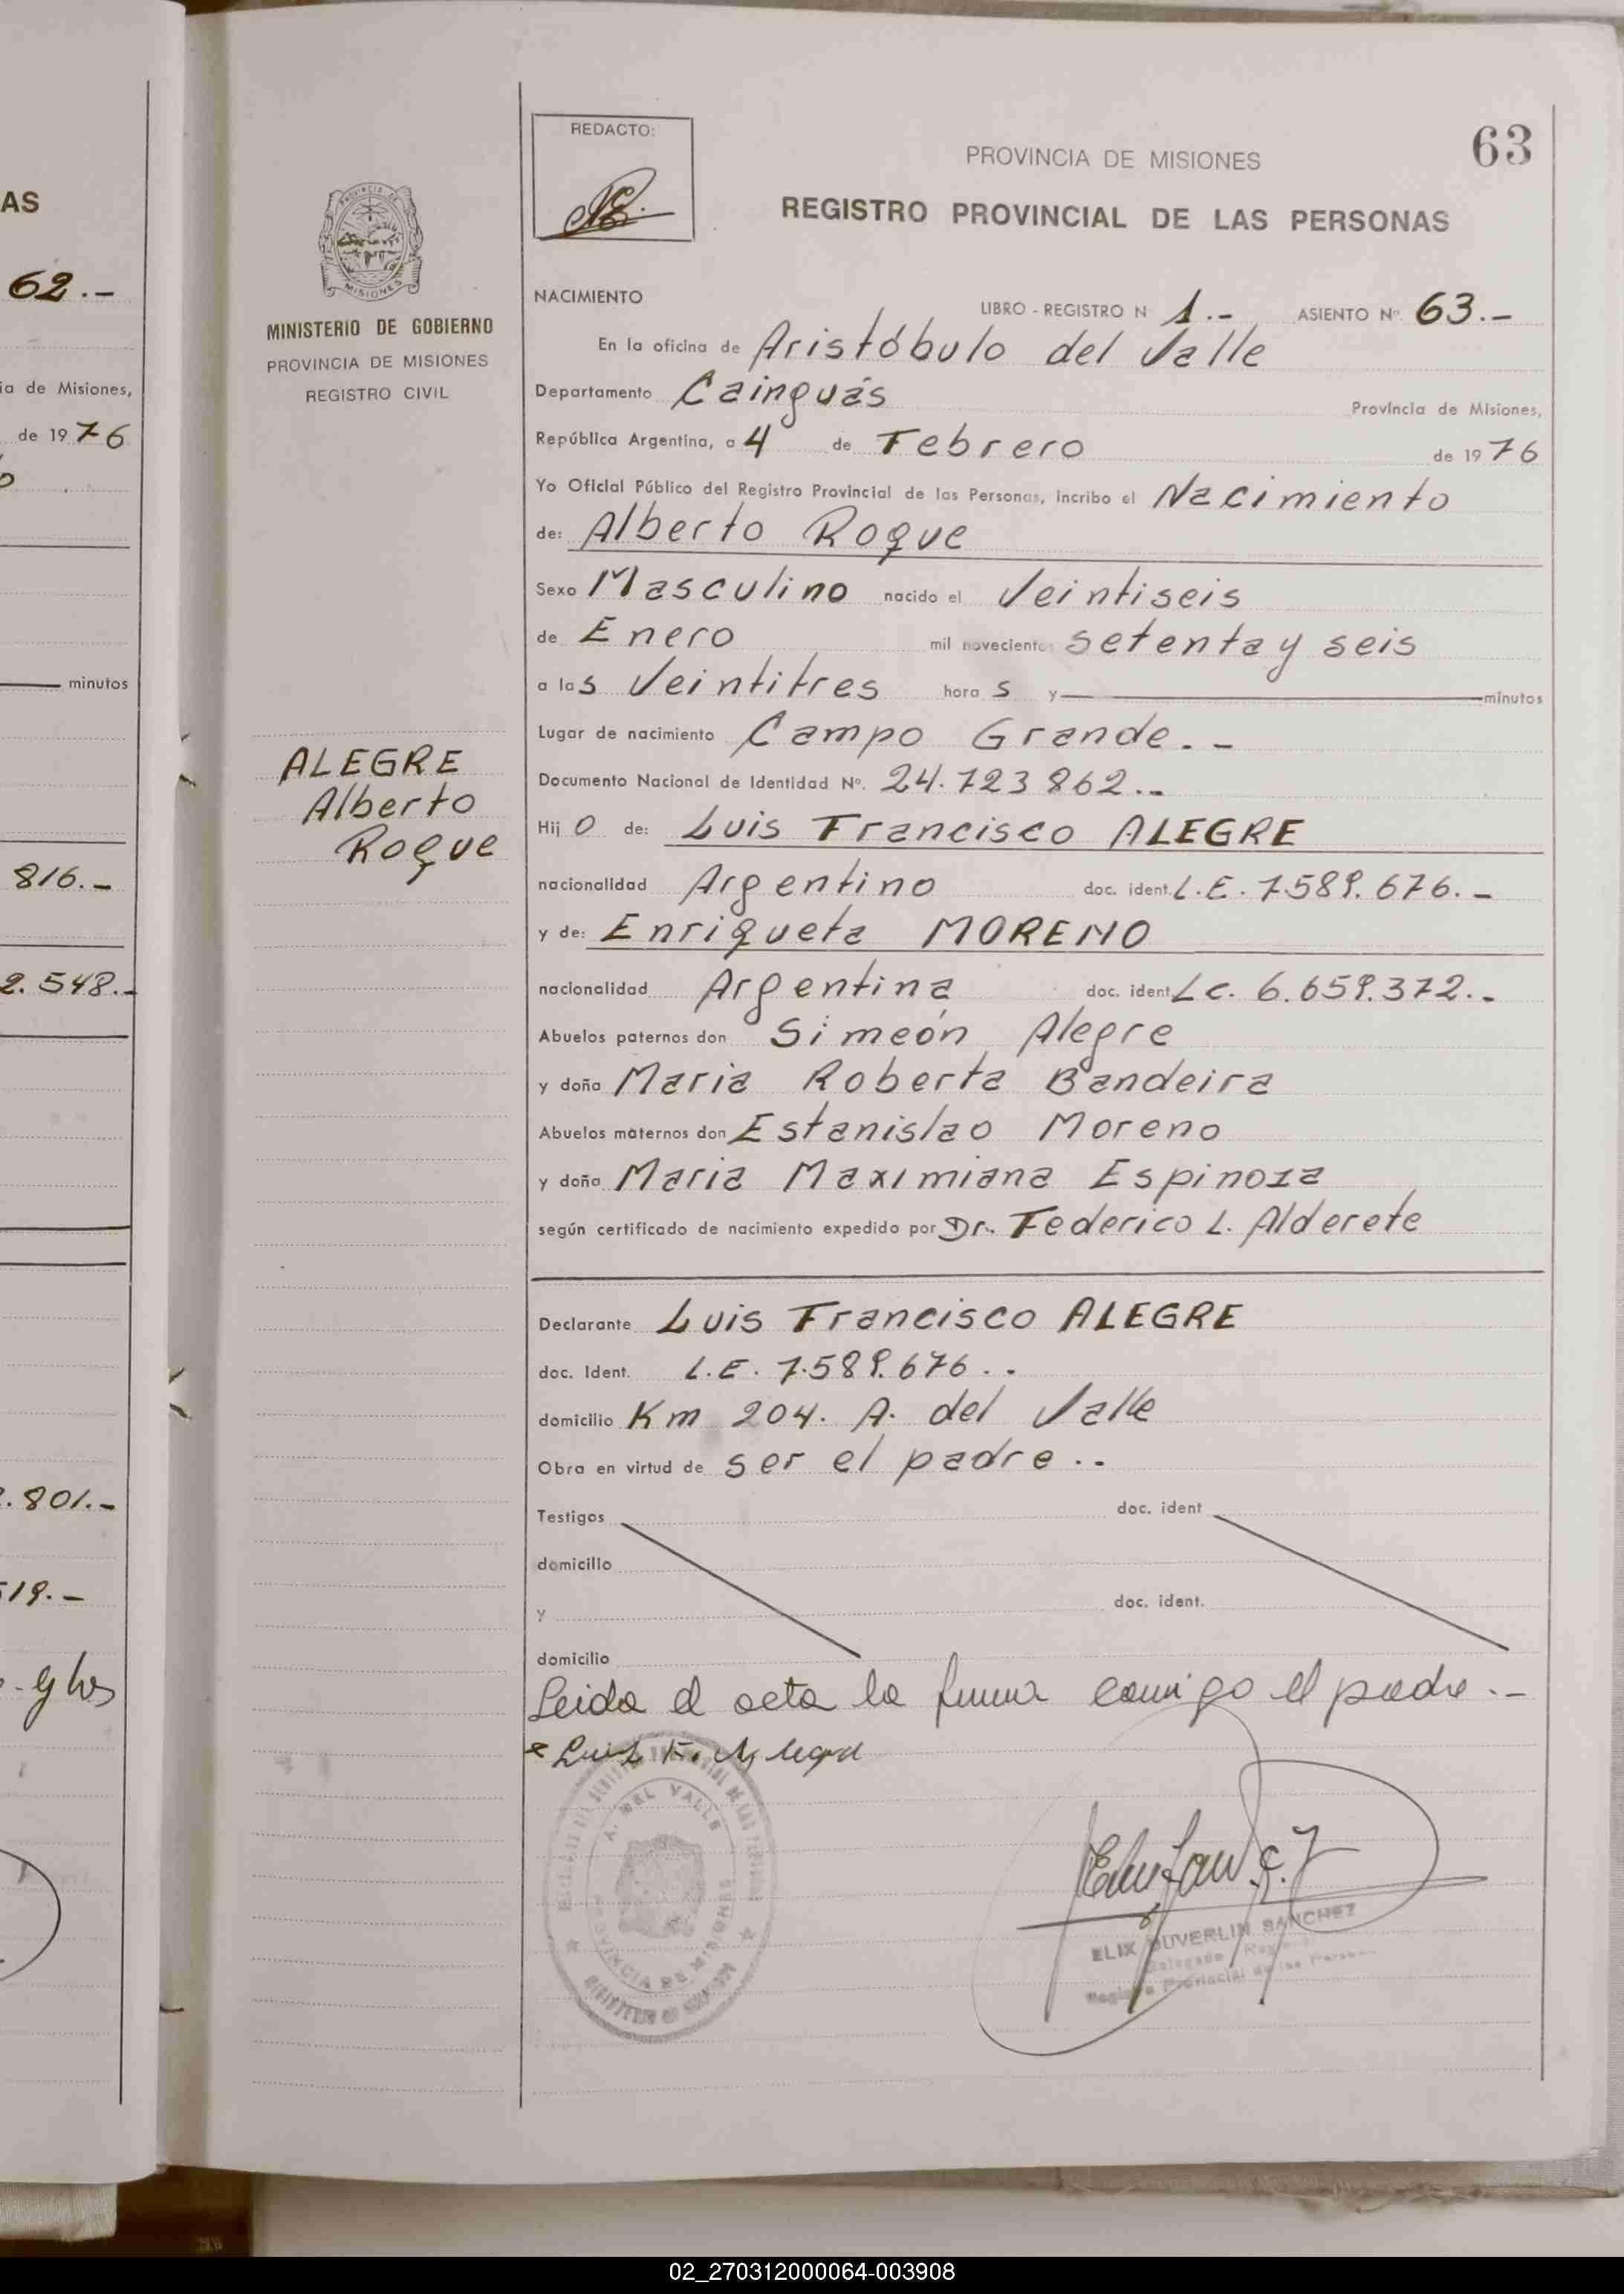 AS
62.-
ia de Misiones,
de 1976
minutos
816.-
2.548.-
.801.-
519.-
MISIONES
MINISTERIO DE GOBIERNO
PROVINCIA DE MISIONES
REGISTRO CIVIL
ALEGRE
Alberto
Roque
REDACTO:
63
PROVINCIA DE MISIONES
REGISTRO PROVINCIAL DE LAS PERSONAS
NACIMIENTO
LIBRO - REGISTRO N 1.- ASIENTO Nº. 63.-
En la oficina de Aristóbulo del Valle
Departamento Cainguás Provincia de Misiones,
República Argentina, a 4 de Febrero de 1976
Yo Oficial Público del Registro Provincial de las Personas, incribo el Nacimiento
de: Alberto Roque
Sexo Masculino nacido el Veintiseis
de Enero mil novecientos setenta y seis
a las Veintitres horas y minutos
Lugar de nacimiento Campo Grande.-
Documento Nacional de Identidad Nº. 24.723862.-
Hijo de: Luis Francisco ALEGRE
nacionalidad Argentino doc. ident. L.E. 7.589.676.-
y de: Enriqueta MORENO
nacionalidad Argentina doc. ident. Lc. 6.659.372.-
Abuelos paternos don Simeón Alegre
y doña Maria Roberta Bandeira
Abuelos maternos don Estanislao Moreno
y doña Maria Maximiana Espinoza
según certificado de nacimiento expedido por Dr. Federico L. Alderete
Declarante Luis Francisco ALEGRE
doc. Ident. L.E. 7.589.676..
domicilio Km 204. A. del Valle
Obra en virtud de ser el padre..
Testigos doc. ident
domicilio
y doc. ident.
domicilio
Leida el acta la firma conmigo el padre.-
Luis F. Alegre
A. DEL VALLE
PROVINCIA DE MISIONES
ELIX DUVERLIN SANCHEZ
Registro Provincial de las Personas
02_270312000064-003908